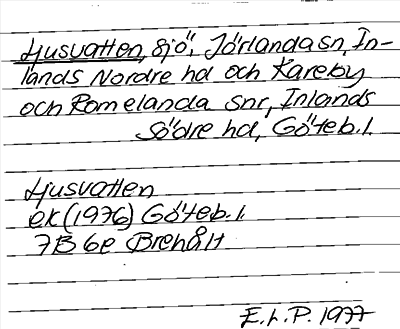 Ljusvatten, sjö, Jörlanda sn, In-
lands Nordre hd och Kareby
och Romelanda snr, Inlands
Södre hd, Göteb. l.
Ljusvatten
ek (1976) Göteb. l.
7B 6e Brehålt
E.L.P. 1977